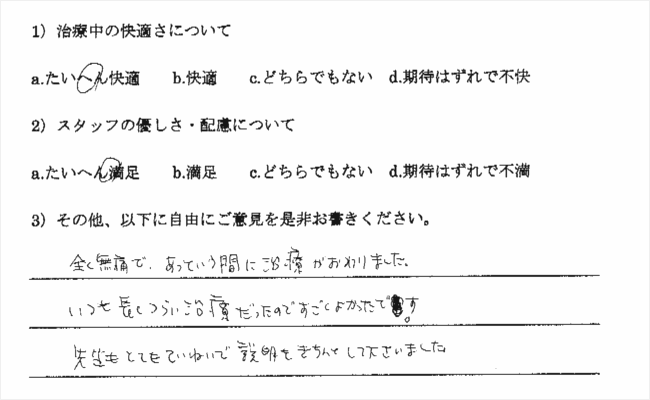 1）治療中の快適さについて
a.たいへん快適　b.快適　c.どちらでもない　d.期待はずれで不快
2）スタッフの優しさ・配慮について
a.たいへん満足　b.満足　c.どちらでもない　d.期待はずれで不満
3）その他、以下に自由にご意見を是非お書きください。
全く無痛で、あっという間に治療がおわりました。
いつも長くつらい治療だったのですごくよかったです。
先生もとてもていねいで説明もきちんとして下さいました